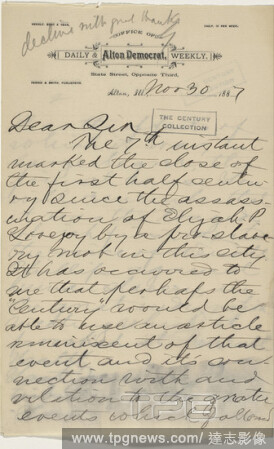 decline with good thanks
OFFICE OF
DAILY & Alton Democrat, WEEKLY.
State Street, Opposite Third,
Alton, Ill. Nov 30 1887
THE CENTURY
COLLECTION
Dear Sir
The 7th instant
marked the close of
the first half centu-
ry since the assas-
sination of Elijah P.
Lovejoy by a pro-slave-
ry mob in this city.
It has occurred to
me that perhaps the
"Century" would be
able to use an article
reminiscent of that
event and its con-
nection with and
relation to the great
events which followed
TPG
www.tpgnews.com/達志影像